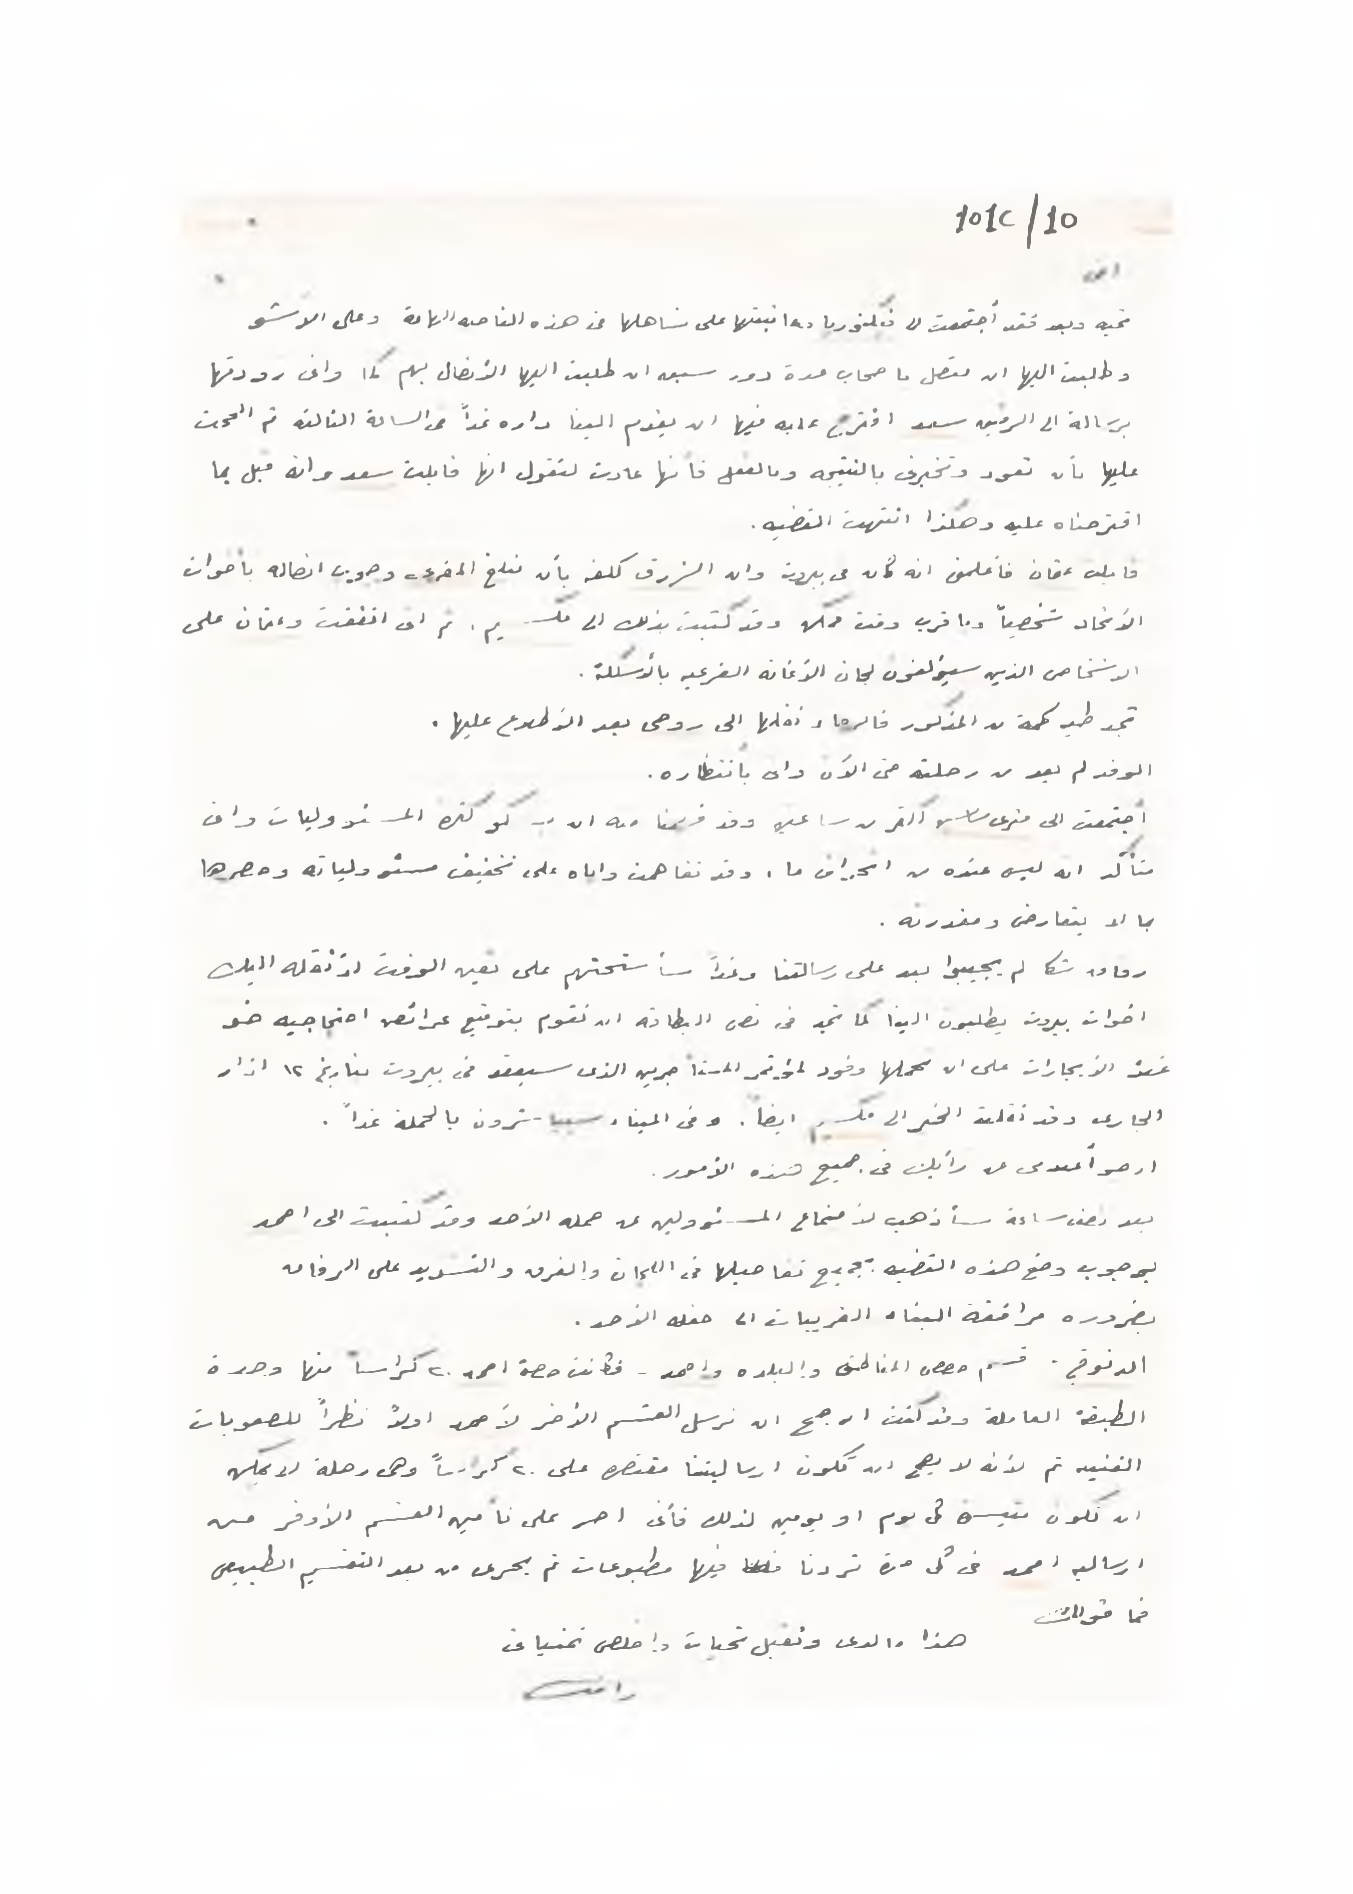 اخي
تحيه وبعد فقد أجتمعت لـ فكتوريا وعاتبتها على تساهلها في هذه الناحيه الهامة وعلى الاثر
وطلبت اليها ان تتصل باصحاب عدة دور سبق ان طلبت اليها الأتصال بهم كما واني زودتها
برسالة الى الرفيق سعد اقترح عليه فيها ان يقدم الينا داره غداً في الساعة الثالثة ثم الححت
عليها بأن تعود وتخبرني بالنتيجه وبالفعل فأنها عادت لتقول انها قابلت سعد وانه قبل بما
اقترحناه عليه وهكذا انتهت القضيه.
قابلت عفان فأعلمني انه كان في بيروت وان الزرق كلفه بأن نبلغ المفرعي وجوب اتصاله بأخوات
الأتحاد شخصياً وباقرب وقت ممكن وقد كتبت بذلك الى مكسيم. ثم اني اتفقت وعفان على
الاشخاص الذين سيؤلفون لجان الأغاثه الفرعيه بالأسكلة.
تجد طيه كلمة من المذكور فالرجاء نقلها الى روحي بعد الأطلاع عليها.
الوفد لم يعد من رحلته حتى الآن واني بأنتظاره.
أجتمعت الى متري أكثر من ساعتين وقد فهمنا منه انه يشكو كثرة المسئووليات واني
متأكد انه ليس عنده من انحراف ما، وقد تفاهمت واياه على تخفيف مسئوولياته وحصرها
بما لا يتعارض ومقدرته.
رفاق شكا لم يجيبوا بعد على رسالتنا وغداً سأستحثهم على تعين الوقت لأنقله اليك
اخوات بيروت يطلبون الينا كما تجد في نص البطاقه ان نقوم بتوقيع عرائض احتجاجيه ضد
الأيجارات على ان تحملها وفود لمؤتمر المستأجرين الذي سيعقد في بيروت بتاريخ ١٢ اذار
الجاري وقد نقلت الخبر الى مكسيم ايضاً. وفي الميناء سيباشرون بالحملة غداً.
ارجو أعلامي عن رأيك في جميع هذه الأمور.
بعد نصف ساعة سأذهب لأجتماع المسئوولين عن حمله الأحد وقد كتبت الى احمد
بوجوب وضع هذه القضيه بجميع تفاصيلها في اللجان والفرق والتشديد على الرفاق
بضروره مرافقة البناء القريبات الى حفلة الأحد.
الدنوقي. قسم حصص المناطق والبلده واحمد - فكانت حصة احمد ٢٠ كراساً منها وحدة
الطبقة العاملة وقد كنت ارجح ان نرسل القسم الأخر لأحمد اولاً نظراً للصعوبات
الفنيه ثم لأنه لا يصح ان تكون ارساليتنا مقتصره على ٢٠ كراساً وهي رحلة لا يمكن
ان تكون متيسرة كل يوم او يومين لذلك فأني اصر على تأمين القسم الأوفر من
ارساليه احمد في كل مرة تردنا فيها مطبوعات ثم يجري من بعد التقسيم الطبيعي
فما قولك
هذا ما لدي وتقبل تحيات واخلص تمنياتي